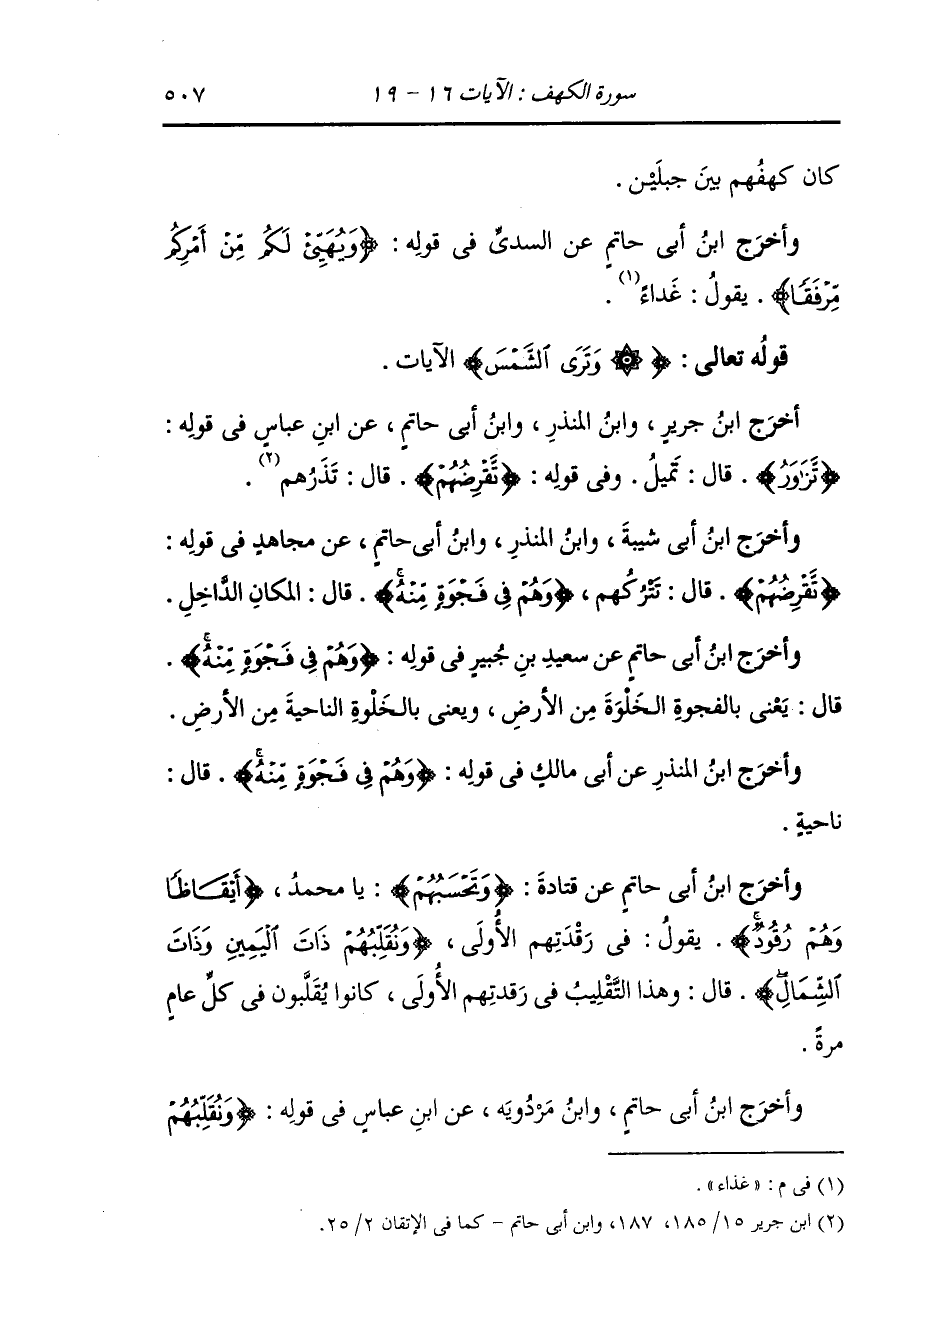 سورة الكهف : الآيات ١٦ - ١٩ ٥٠٧
كان كهفُهم بينَ جبلَيْن .
وأخرَج ابنُ أبى حاتمٍ عن السدىِّ فى قولِه : ﴿وَيُهَيِّئْ لَكُم مِّنْ أَمْرِكُم
مِّرْفَقًا﴾ . يقولُ : غَداءً(١) .
قولُه تعالى : ﴿ ۞ وَتَرَى ٱلشَّمْسَ﴾ الآيات .
أخرَج ابنُ جريرٍ ، وابنُ المنذرِ ، وابنُ أبى حاتمٍ ، عن ابنِ عباسٍ فى قولِه :
﴿تَّزَٰوَرُ﴾ . قال : تَمِيلُ . وفى قولِه : ﴿تَّقْرِضُهُمْ﴾ . قال : تَذَرُهم(٢) .
وأخرَج ابنُ أبى شيبةَ ، وابنُ المنذرِ ، وابنُ أبى حاتمٍ ، عن مجاهدٍ فى قولِه :
﴿تَّقْرِضُهُمْ﴾ . قال : تَتْرُكُهم ، ﴿وَهُمْ فِى فَجْوَةٍ مِّنْهُۚ﴾ . قال : المكانِ الدَّاخِلِ .
وأخرَج ابنُ أبى حاتمٍ عن سعيدِ بنِ جُبيرٍ فى قولِه : ﴿وَهُمْ فِى فَجْوَةٍ مِّنْهُۚ﴾ .
قال : يَعْنى بالفجوةِ الخَلْوَةَ مِن الأرضِ ، ويعنى بالخَلْوةِ الناحيةَ مِن الأرضِ .
وأخرَج ابنُ المنذرِ عن أبى مالكٍ فى قولِه : ﴿وَهُمْ فِى فَجْوَةٍ مِّنْهُۚ﴾ . قال :
ناحيةٍ .
وأخرَج ابنُ أبى حاتمٍ عن قتادةَ : ﴿وَتَحْسَبُهُمْ﴾ : يا محمدُ ، ﴿أَيْقَاظًا
وَهُمْ رُقُودٌۚ﴾ . يقولُ : فى رَقْدَتِهم الأُولَى ، ﴿وَنُقَلِّبُهُمْ ذَاتَ ٱلْيَمِينِ وَذَاتَ
ٱلشِّمَالِۖ﴾ . قال : وهذا التَّقْلِيبُ فى رَقدتِهم الأُولَى ، كانوا يُقَلَّبون فى كلِّ عامٍ
مرةً .
وأخرَج ابنُ أبى حاتمٍ ، وابنُ مَرْدُويَه ، عن ابنِ عباسٍ فى قولِه : ﴿وَنُقَلِّبُهُمْ
(١) فى م : «غذاء» .
(٢) ابن جرير ١٥/ ١٨٥، ١٨٧، وابن أبى حاتم - كما فى الإتقان ٢/ ٢٥.